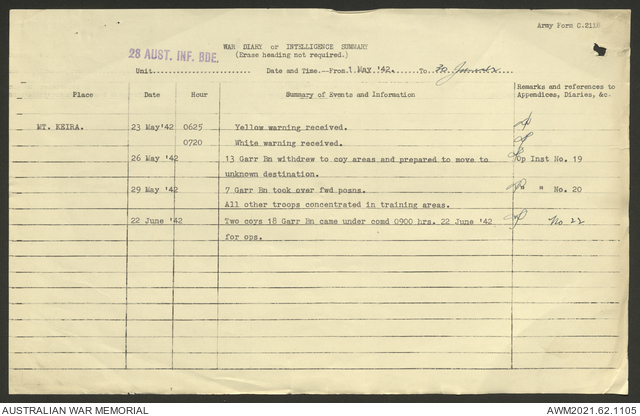 Army Form C.2118
WAR DIARY or INTELLIGENCE SUMMARY
28 AUST. INF. BDE.
(Erase heading not required.)
Unit Date and Time.--From 1 May '42. To 30 June '42
Place Date Hour Summary of Events and Information Remarks and references to Appendices, Diaries, &c.
MT. KEIRA. 23 May '42 0625 Yellow warning received.
0720 White warning received.
26 May '42 13 Garr Bn withdrew to coy areas and prepared to move to Op Inst No. 19
unknown destination.
29 May '42 7 Garr Bn took over fwd posns. " " No. 20
All other troops concentrated in training areas.
22 June '42 Two coys 18 Garr Bn came under comd 0900 hrs. 22 June '42 No 22
for ops.
AUSTRALIAN WAR MEMORIAL AWM2021.62.1105